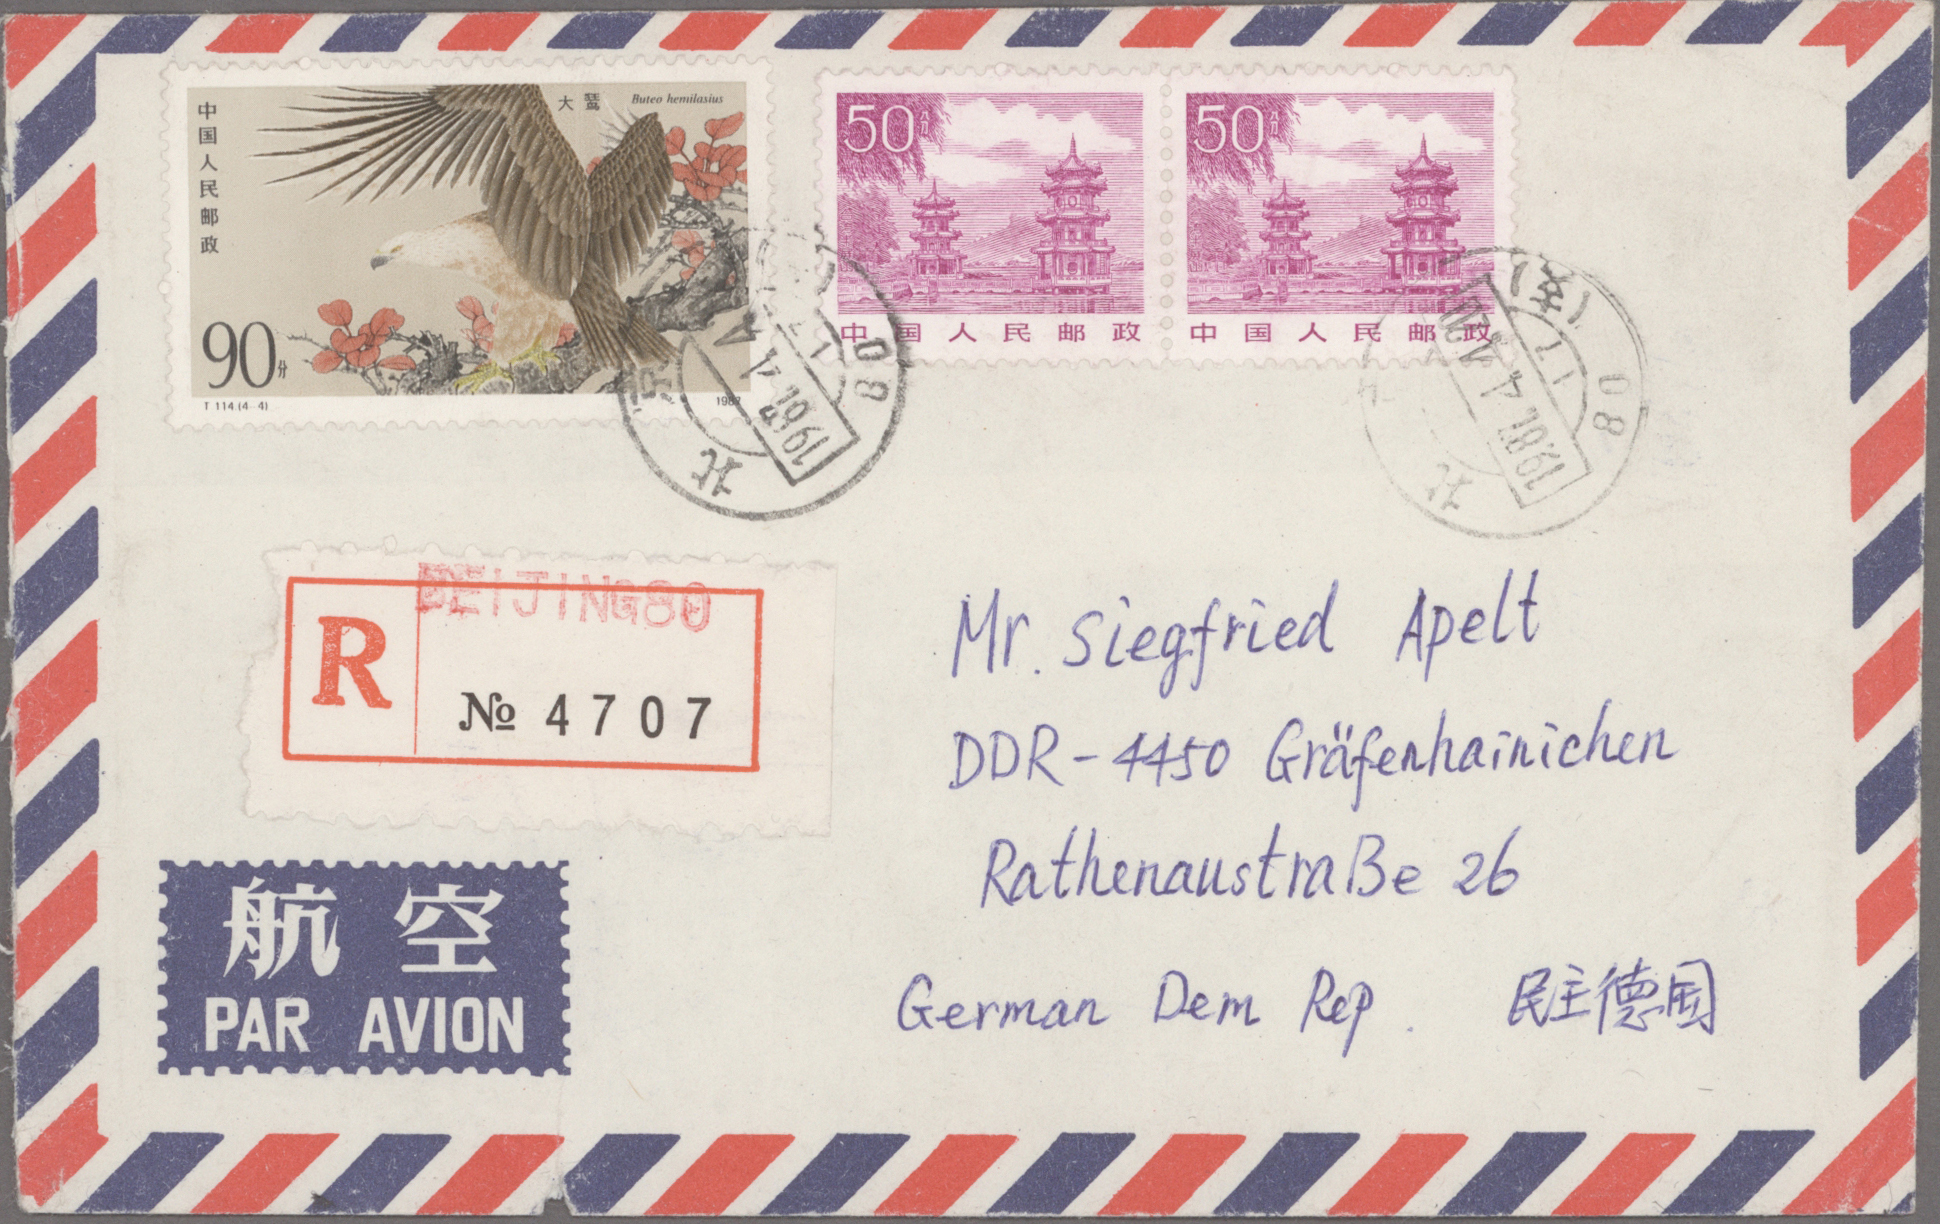 中国人民邮政
大鵟
Buteo hemilasius
90分
T 114.(4-4)
1987
50分
中国人民邮政
50分
中国人民邮政
北京
08
1987.4.
北
08
1987.4.20
BEIJING80
R
№ 4707
Mr. Siegfried Apelt
DDR-4450 Gräfenhainichen
Rathenaustraße 26
German Dem Rep. 民主德国
航空
PAR AVION